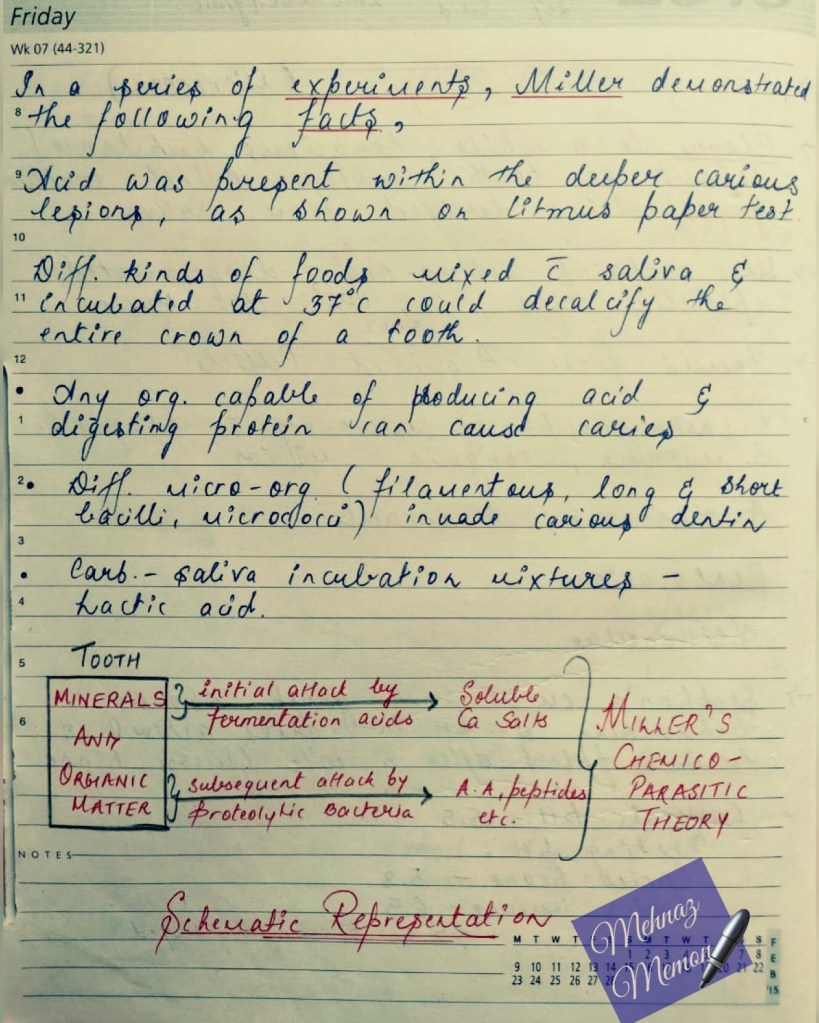 Friday
Wk 07 (44-321)
In a series of experiments, Miller demonstrated
8 the following facts,
9 Acid was present within the deeper carious
lesions, as shown on litmus paper test
10
Diff. kinds of foods mixed c̄ saliva &
11 incubated at 37°C could decalcify the
entire crown of a tooth.
12
• Any org. capable of producing acid &
1 digesting protein can cause caries
2 • Diff. micro-org. (filamentous, long & short
bacilli, micrococci) invade carious dentin
3
• Carb. - saliva incubation mixtures -
4 Lactic acid.
5 TOOTH
MINERALS initial attack by Soluble
fermentation acids Ca Salts MILLER'S
6 AND CHEMICO-
ORGANIC subsequent attack by A.A, peptides PARASITIC
MATTER proteolytic Bacteria etc. THEORY
NOTES
Schematic Representation
Mehnaz
Memon
M T W T S S
1
7 8
9 10 11 12 13 14 20 21 22
23 24 25 26 27 28
FEB '15